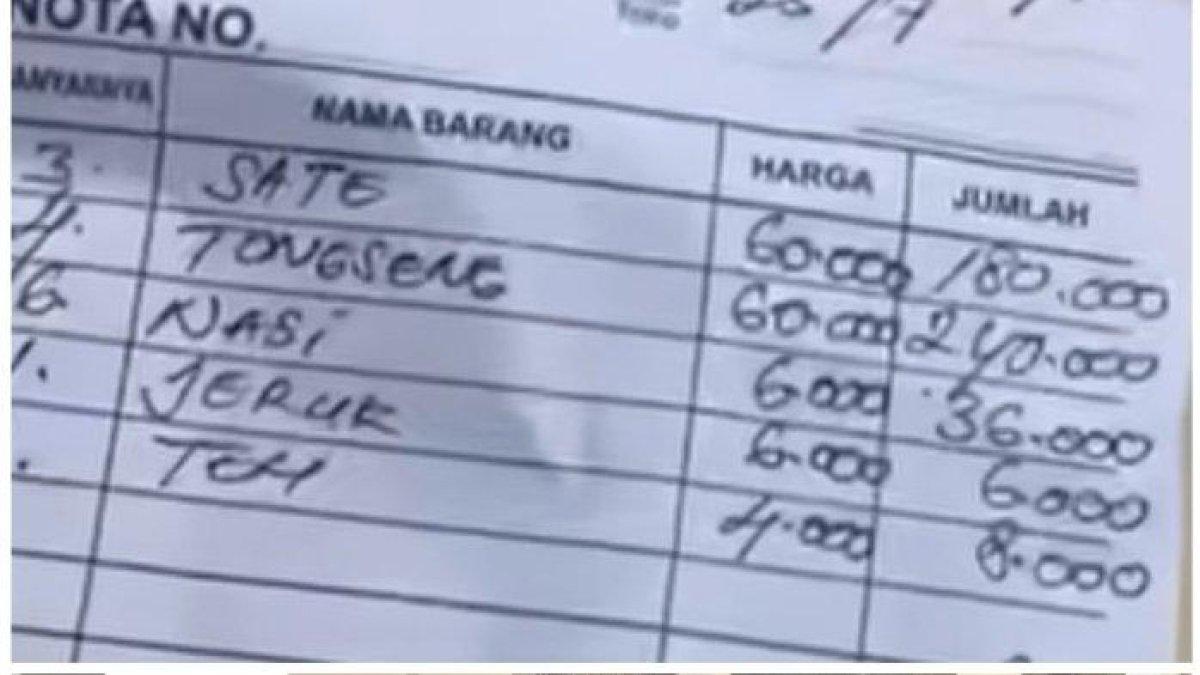 NOTA NO.
Toko
BANYAKNYA NAMA BARANG HARGA JUMLAH
3. SATE 60.000 180.000
4. TONGSENG 60.000 240.000
6 NASI 6000 36.000
1. JERUK 6.000 6000
TEH 4.000 8.000